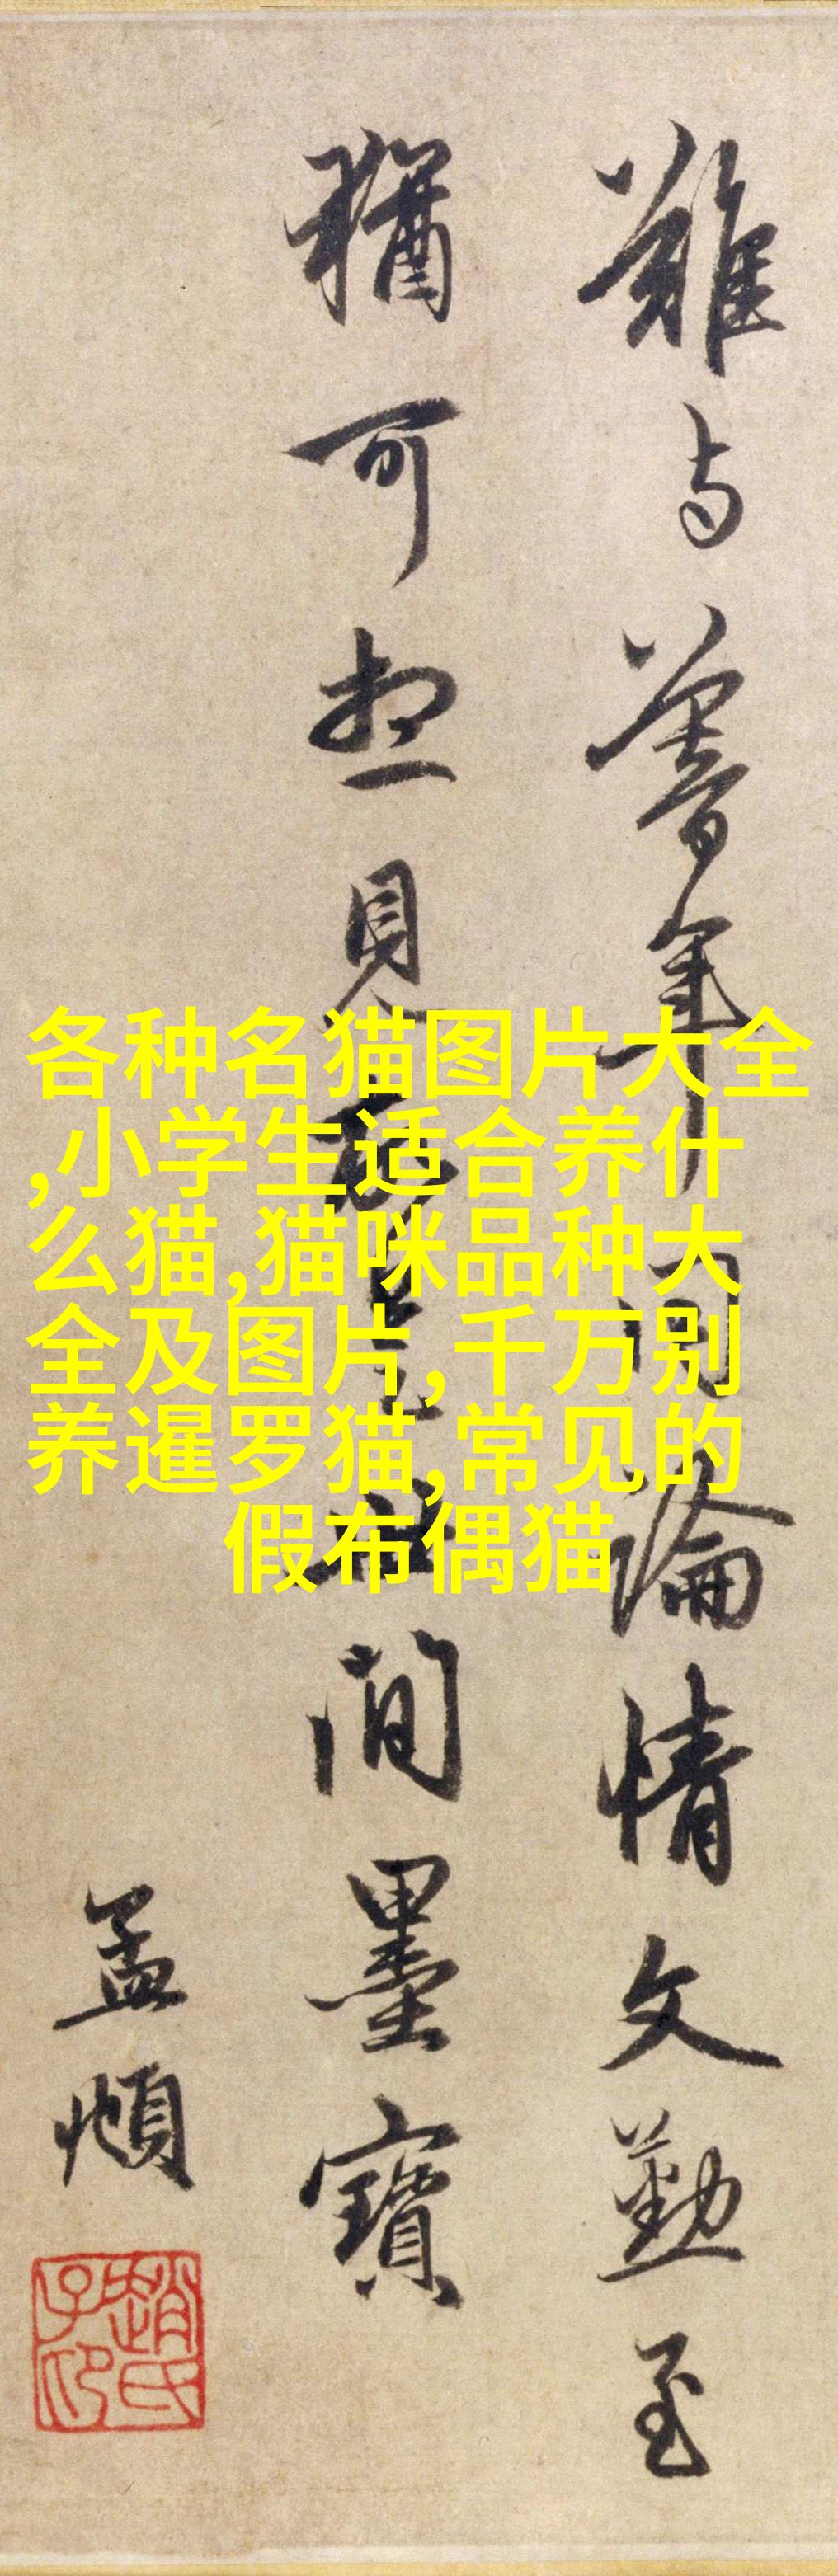 難与暮年同論情文勤至
猶可想見於其間墨寶
孟頫
趙氏子印
各种名猫图片大全
,小学生适合养什
么猫,猫咪品种大
全及图片,千万别
养暹罗猫,常见的
假布偶猫